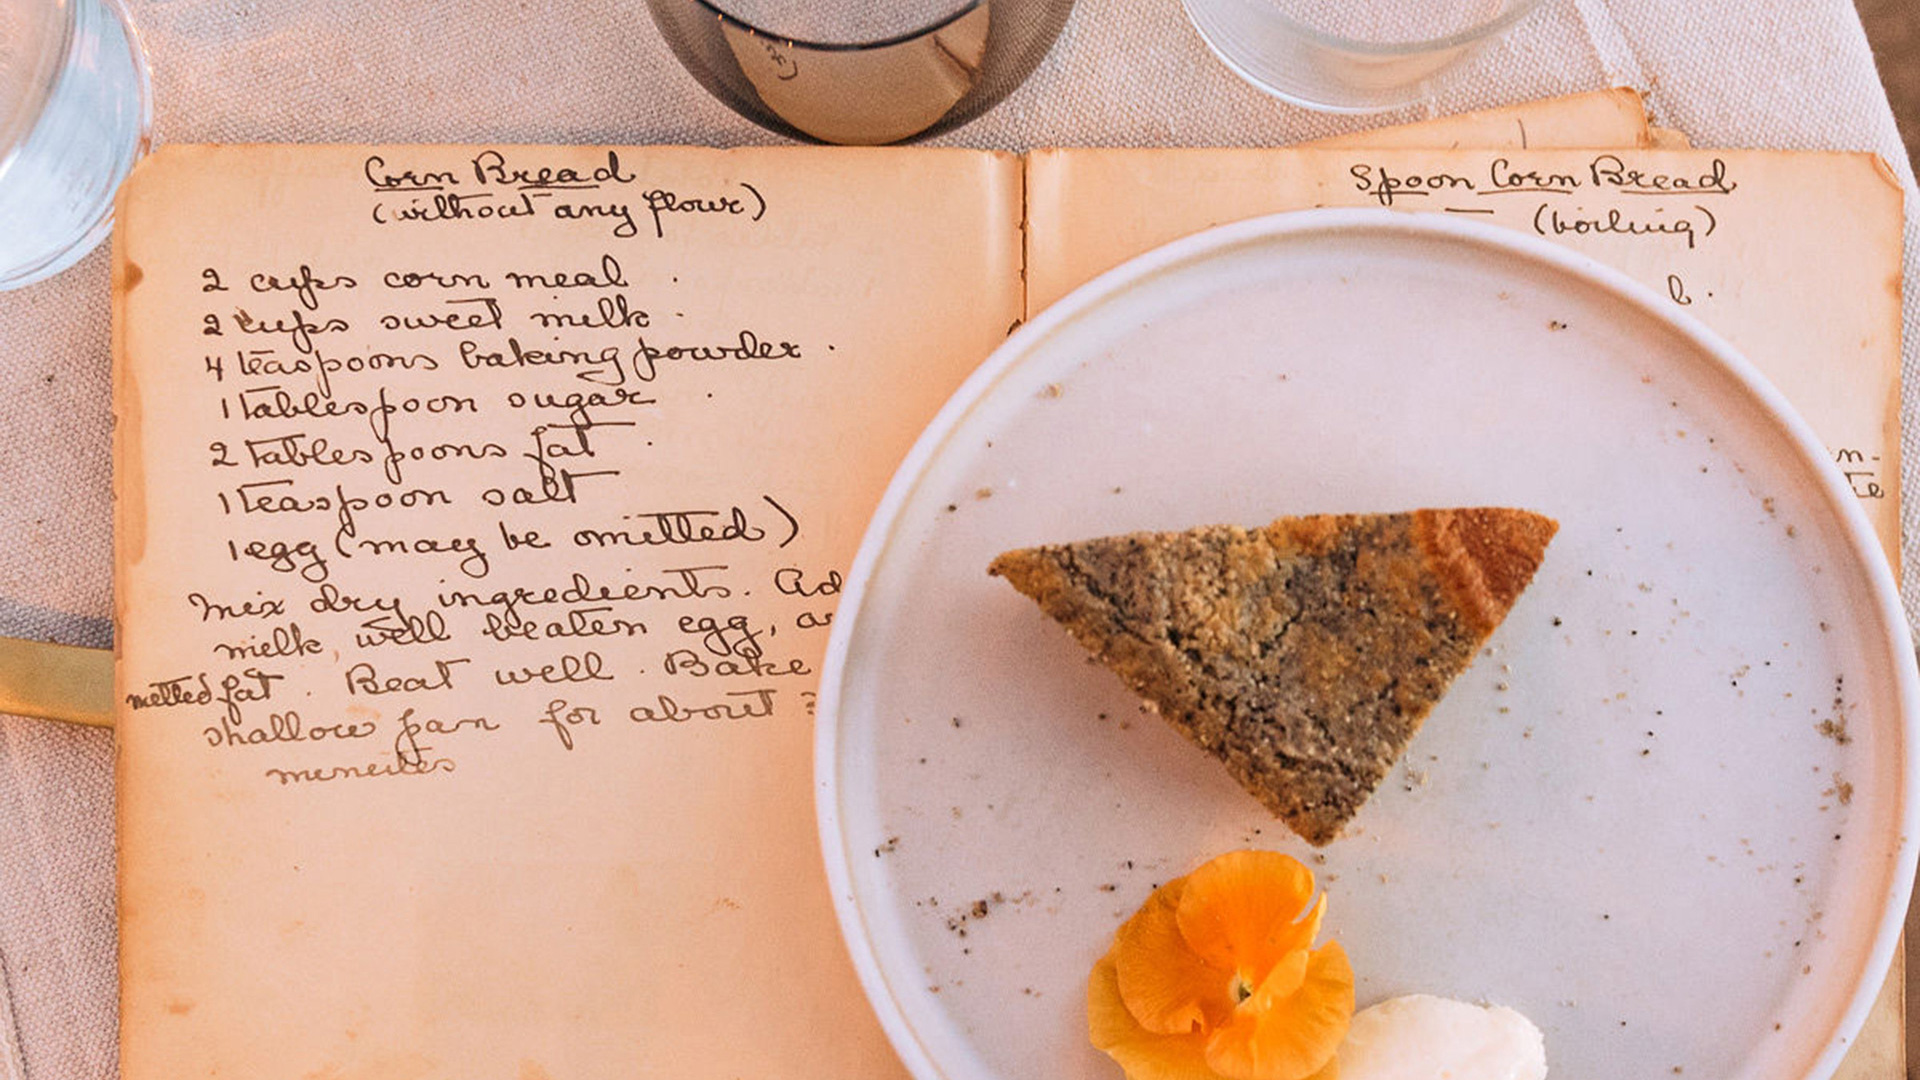 Corn Bread
(without any flour)
2 cups corn meal .
2 cups sweet milk .
4 teaspoons baking powder .
1 tablespoon sugar .
2 tablespoons fat .
1 teaspoon salt
1 egg (may be omitted)
Mix dry ingredients. Ad
milk, well beaten egg, a
melted fat . Beat well . Bake
shallow pan for about
minutes
Spoon Corn Bread
(boiling)
l .
n-
te